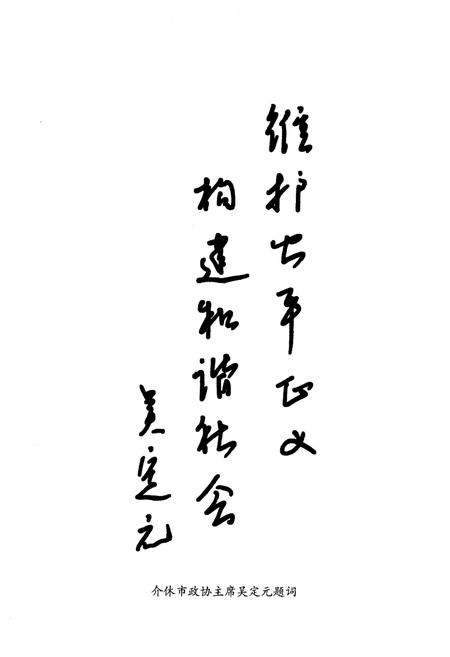 维护公平正义
构建和谐社会
吴定元
介休市政协主席吴定元题词